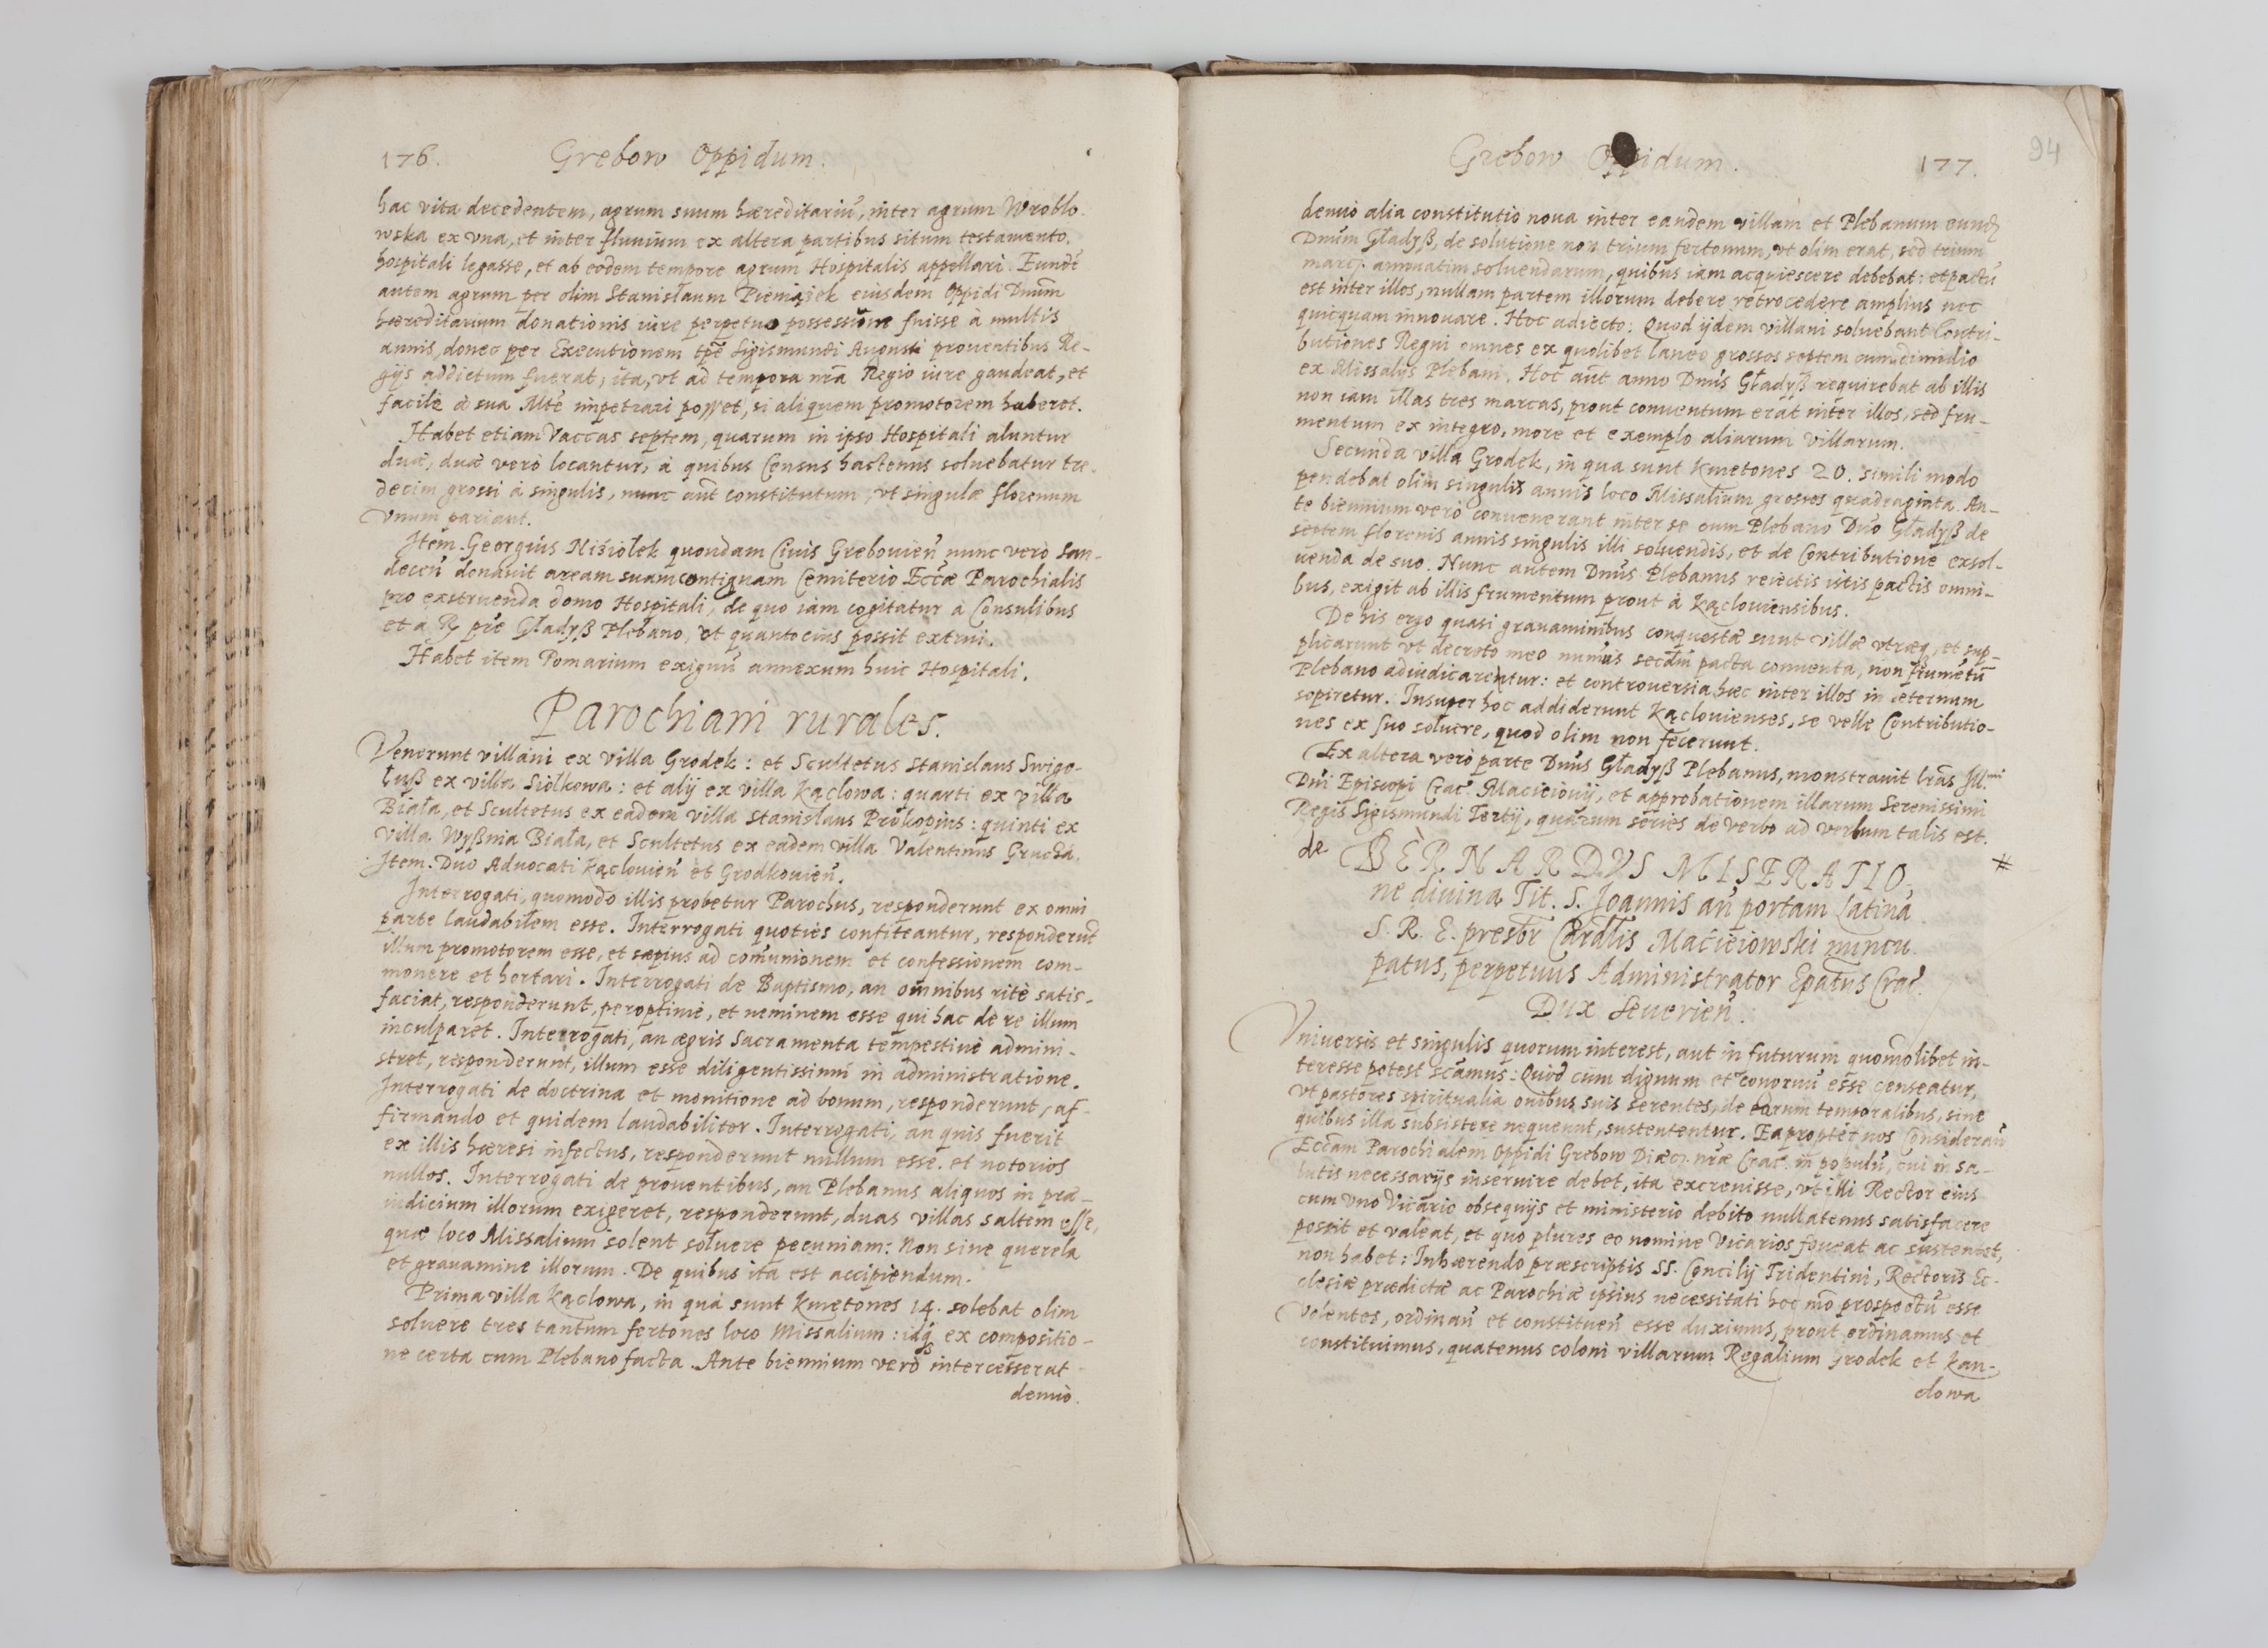 176. Grebow Oppidum.
hac vita decedentem, agrum suum hæreditariũ, inter agrum Wroblo-
wska ex vna, et inter fluuium ex altera partibus situm testamento
hospitali legasse, et ab eodem tempore agrum Hospitalis appellari. Eundẽ
autem agrum per olim Stanisłaum Pieniążek eiusdem Oppidi Dnum
hæreditarium donationis iure perpetuo possessum fuisse à multis
annis, donec per Executionem tpẽ Sigismundi Augusti prouentibus Re-
gijs addictum fuerat, ita, vt ad tempora nrã Regio iure gaudeat, et
facilè à sua Mtẽ impetrari posset, si aliquem promotorem haberet.
Habet etiam Vaccas septem, quarum in ipso Hospitali aluntur
duæ, duæ verò locantur, à quibus Census hactenus soluebatur tre-
decim grossi à singulis, nunc aũt constitutum, vt singulæ florenum
vnum pariant.
Item Georgius Niziołek quondam Ciuis Grebouieñ nunc verò San-
deceñ donauit aream suam contiguam Cemiterio Eccæ Parochialis
pro exstruenda domo Hospitali, de quo iam cogitatur à Consulibus
et a R prẽ Gładyß Plebano, vt quantocius possit extrui.
Habet item Pomarium exiguũ annexum huic Hospitali.
Parochiani rurales.
Venerunt villani ex Villa Grodek: et Scultetus Stanislaus Swige-
łuß ex villa Siolkowa: et alij ex villa Kąclowa: quarti ex villa
Biała, et Scultetus ex eadem villa Stanislaus Prokopius: quinti ex
villa Wyßnia Biała, et Scultetus ex eadem villa Valentinus Grucza.
Item Duo Aduocati Kąclouieñ et Grodkouieñ.
Interrogati, quomodo illis probetur Parochus, responderunt ex omni
parte laudabilem esse. Interrogati quoties confiteantur, responderũt
illum promotorem esse, et sæpius ad cõmunionem et confessionem com-
monere et hortari. Interrogati de Baptismo, an omnibus ritè satis-
faciat, responderunt, peroptimè, et neminem esse qui hac de re illum
inculparet. Interrogati, an ægris Sacramenta tempestiuè admini-
stret, responderunt, illum esse diligentissimũ in administratione.
Interrogati de doctrina et monitione ad bonum, responderunt, af-
firmando et quidem laudabiliter. Interrogati, an quis fuerit
ex illis hæresi infectus, responderunt nullum esse et notorios
nullos. Interrogati de prouentibus, an Plebanus aliquos in præ-
iudicium illorum exigeret, responderunt, duas villas saltem esse,
quæ loco Missalium solent soluere pecuniam: Non sine querela
et grauamine illorum. De quibus ita est accipiendum.
Prima villa Kąclowa, in qua sunt Kmetones 14. solebat olim
soluere tres tantum fertones loco Missalium: idq ex compositio-
ne certa cum Plebano facta. Ante biennium verò intercesserat
denuò
Grebow Oppidum. 177. 94
denuò alia constitutio noua inter eandem villam et Plebanum eundẽ
Dnũm Gładyß, de solutione non trium fertonum, vt olim erat, sed trium
marc. annuatim soluendarum, quibus iam acquiescere debebat: et pactũ
est inter illos, nullam partem illorum debere retrocedere amplius nec
quicquam innouare. Hoc adiecto: Quod ijdem villani soluebant Contri-
butiones Regni omnes ex quolibet laneo grossos septem cum dimidio
ex Missalijs Plebani. Hoc aũt anno Dnũs Gładyß requirebat ab illis
non iam illas tres marcas, prout conuentum erat inter illos, sed fru-
mentum ex integro, more et exemplo aliarum villarum.
Secunda villa Grodek, in qua sunt Kmetones 20. simili modo
pendebat olim singulis annis loco Missalium grossos quadraginta. An-
te biennium verò conuenerant inter se cum Plebano Dnõ Gładyß de
septem florenis annis singulis illi soluendis, et de Contributione exsol-
uenda de suo. Nunc autem Dnũs Plebanus reiectis istis pactis omni-
bus, exigit ab illis frumentum prout à Kąclouiensibus.
De his ergo quasi grauaminibus conquestæ sunt villæ vtræq, et sup-
plicarunt vt decreto meo numus secdũm pacta conuenta, non frumẽtũ
Plebano adiudicarentur: et controuersia hæc inter illos in æternum
sopiretur. Insuper hoc addiderunt Kąclouienses, se velle Contributio-
nes ex suo soluere, quod olim non fecerunt.
Ex altera verò parte Dnũs Gładyß Plebanus, monstrauit lrãs Ill.mi
Dnĩ Episcopi Crac. Macieiouij, et approbationem illarum Serenissimi
Regis Sigismundi Tertij, quarum series de verbo ad verbum talis est.
de BERNARDVS MISERATIO- #
ne diuina Tit. S. Joannis añ portam Latinã
S. R. E. presbr Cardlis Macieiowski nuncu
patus, perpetuus Administrator Epatus Crac.
Dux Seuerieñ.
Vniuersis et singulis quorum interest, aut in futurum quomolibet in-
teresse potest scãmus: Quod cum dignum et conornũ esse censeatur,
vt pastores spiritualia ouibus suis serentes, de earum temporalibus, sine
quibus illa subsistere nequeunt, sustententur. Eapropter nos Considerañ
Eccam Parochialem Oppidi Grebow Diæc. nræ Crac. in populũ, cui in sa-
lutis necessarijs inseruire debet, ita excreuisse, vt illi Rector eius
cum vno Vicario obsequijs et ministerio debito nullatenus satisfacere
possit et valeat, et quo plures eo nomine Vicarios foueat ac sustentet,
non habet: Inhærendo præscriptis SS. Concilij Tridentini, Rectoris Ec-
clesiæ prædictæ ac Parochiæ ipsius necessitati hoc mõ prospectũ esse
volentes, ordinañ et constitueñ esse duximus, prout ordinamus et
constituimus, quatenus coloni villarum Regalium Grodek et Kan-
clowa